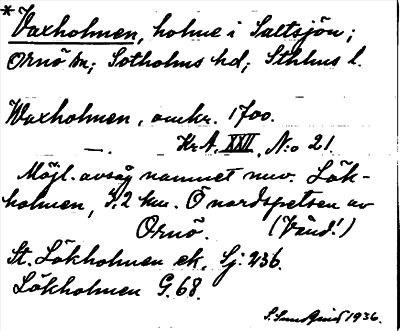 * Vaxholmen, holme i Saltsjön;
Ornö sn; Sotholms hd; Sthlms l.
Waxholmen, omkr. 1700.
—. Kr. A. XXII, N:o 21.
Möjl. avsåg namnet nuv. Lök-
holmen, 3,2 km. Ö nordspetsen av
Ornö. (Vänd!)
St. Lökholmen ek. Sj: 236.
Lökholmen G. 68.
1936.